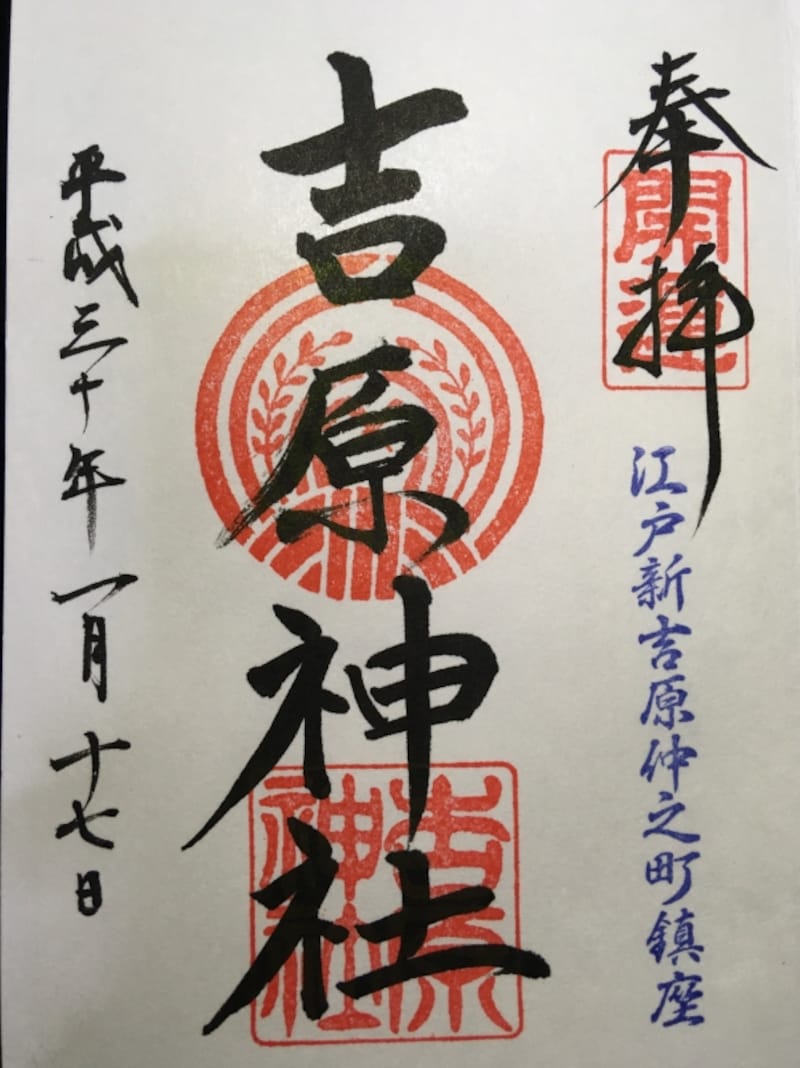 奉拝
開運
江戸新吉原仲之町鎮座
吉原神社
吉原神社
平成三十年一月十七日